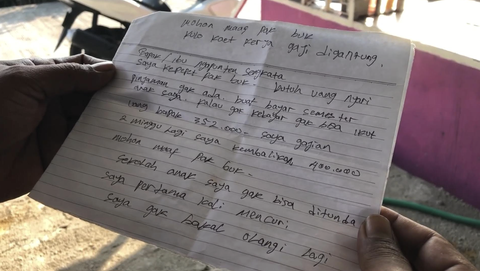 mohon maaf Pak buk
kulo kaet kerja gaji digantung.
Bapak/ibu nyuwun sangkata
saya kepepet pak buk. butuh uang nyari
pinjaman gak ada buat bayar semester
anak saya. kalau gak kebayar gak bisa ikut
uang bapak 352.000. saya gajian
2 minggu lagi saya kembalikan 400.000
mohon maaf Pak buk.
sekolah anak saya gak bisa ditunda
saya pertama kali mencuri
saya gak bakal olangi lagi